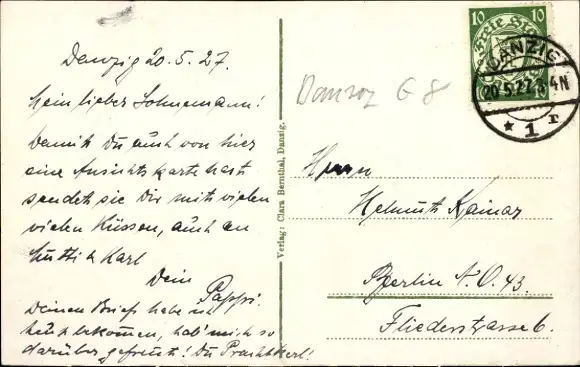 Danzig 20.5.27.
Mein lieber Sohnemann!
Damit Du auch von hier
eine Ansichtskarte hast
sendet sie Dir mit vielen
vielen Küssen, auch an
Mutti & Karl
Dein
Pappi.
Deinen Brief habe ich
heut bekommen, hab' mich so
darüber gefreut! Du Prachtkerl!
Verlag: Clara Bernthal, Danzig.
Danzig G 8
10 10
Freie Stadt
DANZIG
20.5.27.
4N
* 1 r
Herrn
Helmuth Kainar
Berlin N.O. 43.
Fliederstrasse 6.